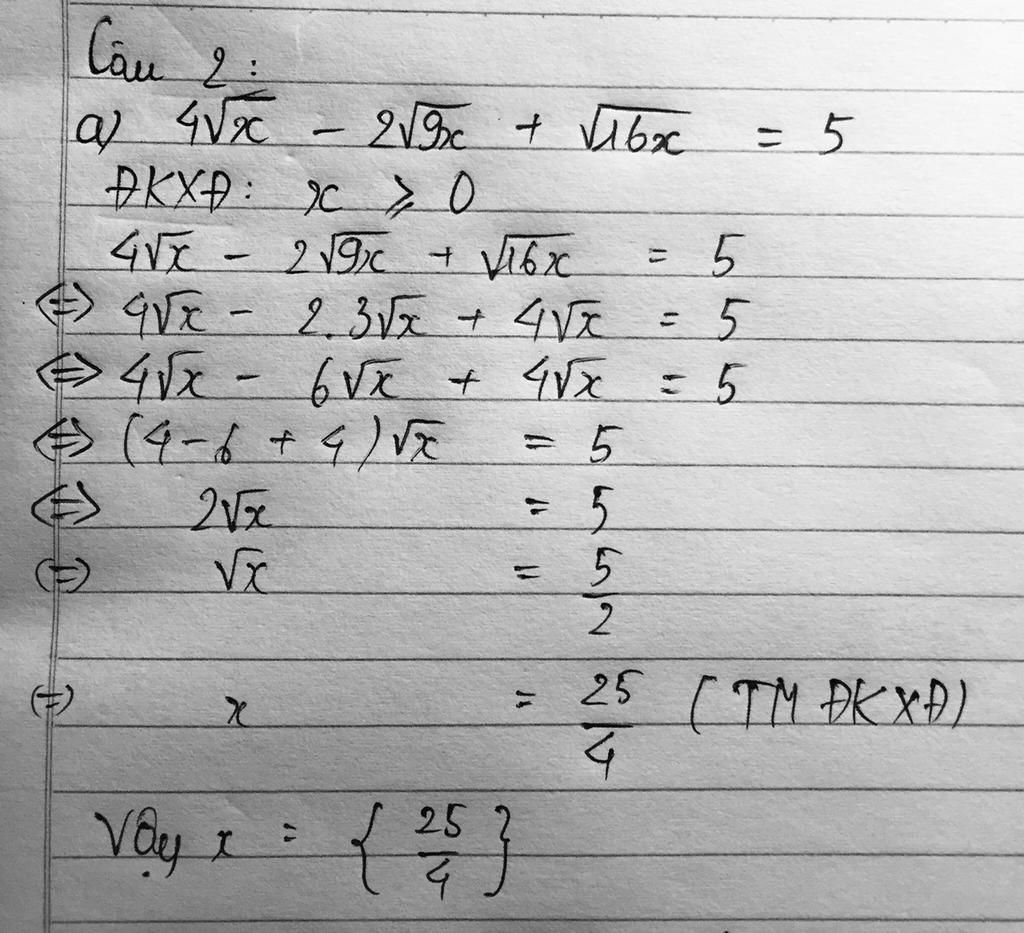 Câu 2:
a) 4√x - 2√9x + √16x = 5
ĐKXĐ: x ⩾ 0
4√x - 2√9x + √16x = 5
⇔ 4√x - 2.3√x + 4√x = 5
⇔ 4√x - 6√x + 4√x = 5
⇔ (4-6+4)√x = 5
⇔ 2√x = 5
⇔ √x = 5/2
⇔ x = 25/4 (TM ĐKXĐ)
Vậy x = {25/4}